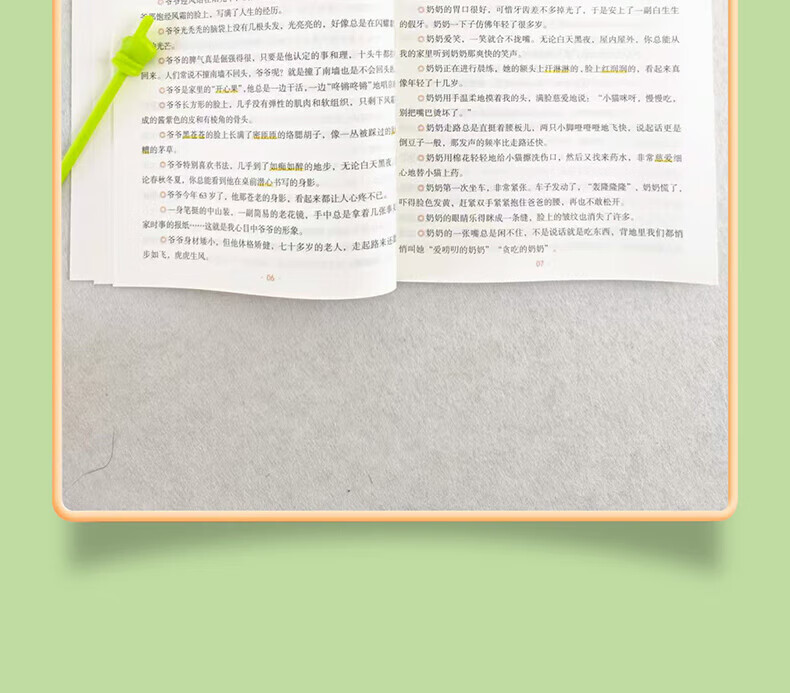 爷那饱经风霜的脸上，写满了人生的经历。
◎爷爷光秃秃的脑袋上没有几根头发，光亮亮的，好像总是在闪耀
光芒。
◎爷爷的脾气真是倔强得很，只要是他认定的事和理，十头牛都
回来。人们常说不撞南墙不回头，爷爷呢？就是撞了南墙也是不会回头
◎爷爷是家里的“开心果”，他总是一边干活，一边“咚锵咚锵”地唱
◎爷爷长方形的脸上，几乎没有弹性的肌肉和软组织，只剩下风
成的酱紫色的皮和有棱角的骨头。
◎爷爷黑苍苍的脸上长满了密匝匝的络腮胡子，像一丛被踩过的
糟的茅草。
◎爷爷特别喜欢书法，几乎到了如痴如醉的地步，无论白天黑夜，
论春秋冬夏，你总能看到他在桌前潜心书写的身影。
◎爷爷今年63岁了，他那苍老的身影，看起来都让人心疼不已。
◎一身笔挺的中山装，一副简易的老花镜，手中总是拿着几张
家时事的报纸……这就是我心目中爷爷的形象。
◎爷爷身材矮小，但他体格矫健，七十多岁的老人，走起路来还
步如飞，虎虎生风。
06
◎奶奶的胃口很好，可惜牙齿差不多掉光了，于是安上了一副白生生
的假牙。奶奶一下子仿佛年轻了很多岁。
◎奶奶爱笑，一笑就合不拢嘴。无论白天黑夜，屋内屋外，你总能从
我的家里听到奶奶那爽快的笑声。
◎奶奶正在进行晨练，她的额头上汗淋淋的，脸上红润润的，看起来真
像年轻了十几岁。
◎奶奶用手温柔地摸着我的头，满脸慈爱地说：“小猫咪呀，慢慢吃，
别把嘴巴烫坏了。”
◎奶奶走路总是直挺着腰板儿，两只小脚噔噔噔地飞快，说起话更是
倒豆子一般，那发声的频率比走路还快。
◎奶奶用棉花轻轻地给小猫擦洗伤口，然后又找来药水，非常慈爱细
心地替小猫上药。
◎奶奶第一次坐车，非常紧张。车子发动了，“轰隆隆隆”，奶奶慌了，
吓得脸色发黄，赶紧双手紧紧抱住爸爸的腰，再也不敢松开。
◎奶奶的眼睛乐得眯成一条缝，脸上的皱纹也消失了许多。
◎奶奶的一张嘴总是闲不住，不是说话就是吃东西，背地里我们都悄
悄叫她“爱唠叨的奶奶”“贪吃的奶奶”。
07